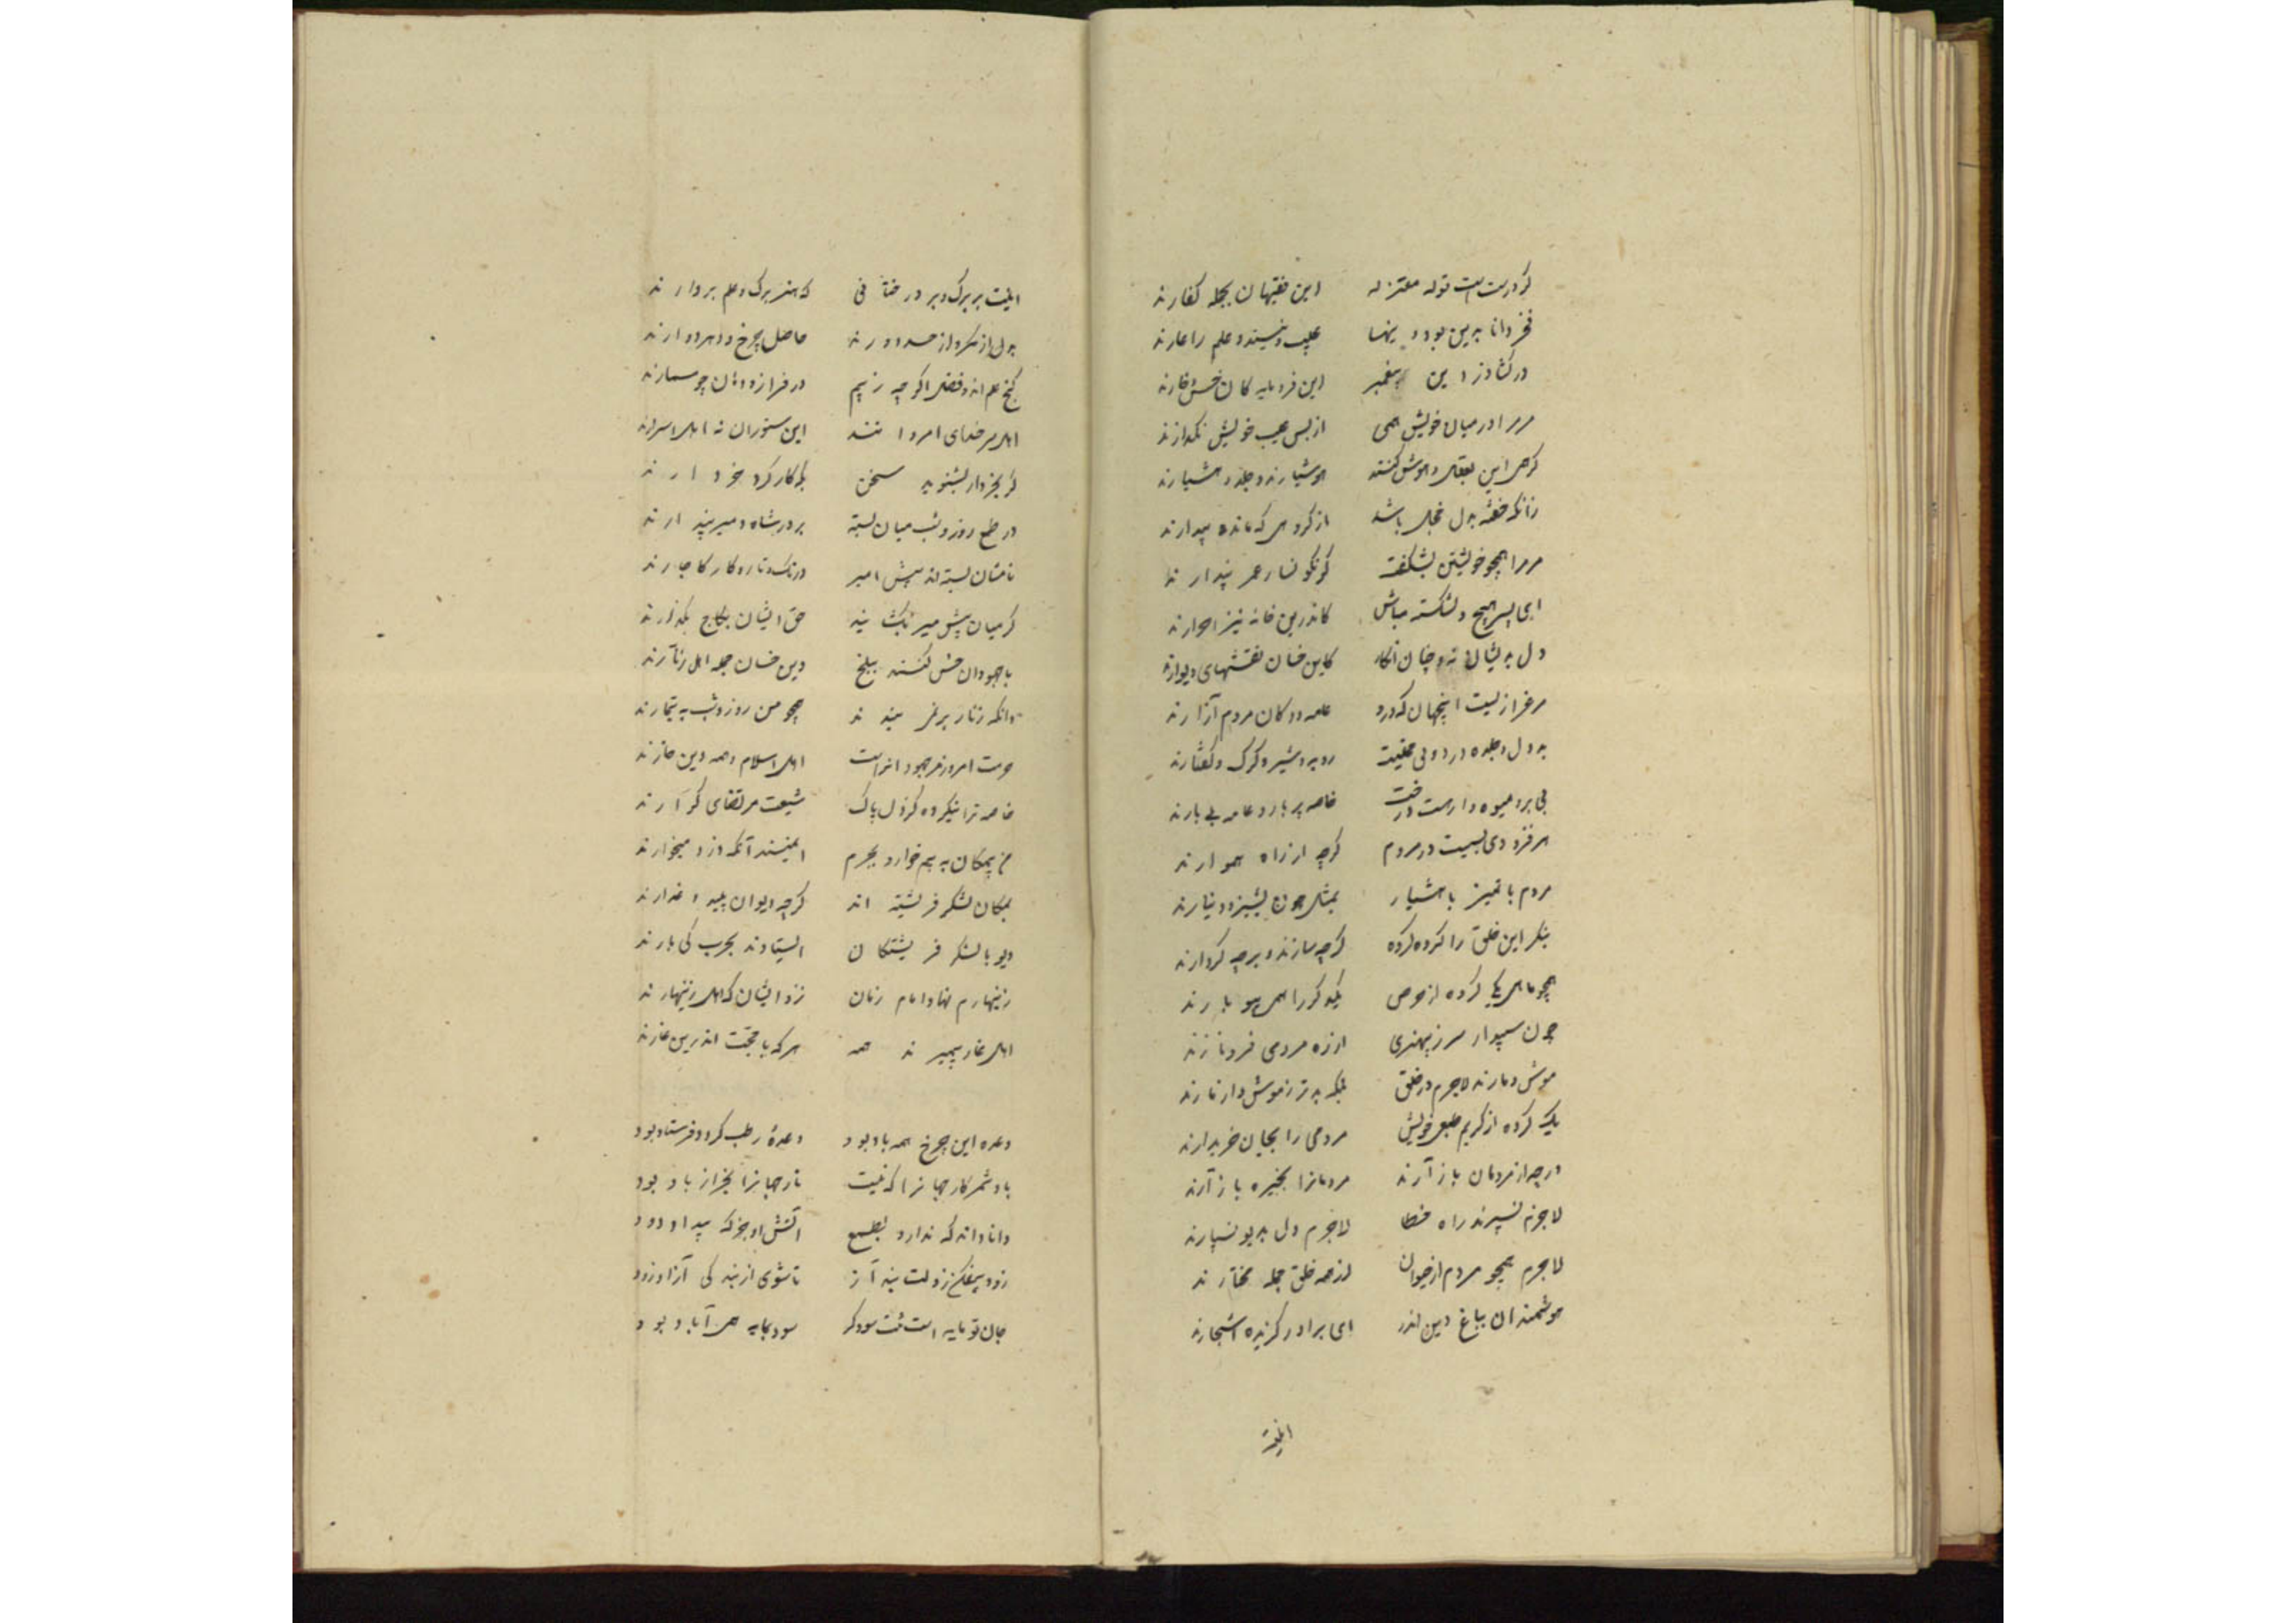 گر درست است قول معتزله این فقیهان بجمله کفارند
فخر دانا بدین بود وینها عیب دینند و علم را عارند
در کشاورز دین پیغمبر این فرومایه کان خس و خارند
مر مرا در میان خویش همی از بس عیب خویش نگذارند
گر همی این بعقل و هوش کنند هوشیارند و جلد و هشیارند
زانکه خفته بدل خجل باشد از گروهی که مانده بیدارند
مر مرا همچو خویشتن نشگفت گر نگونسار و غمر پندارند
ای پسر هیچ دلشکسته مباش کاندرین خانه نیز احرارند
دل بدیشان نه و چنان انگار کاین خسان نقشهای دیوارند
مرغزاریست اینجهان که درو عامه ددگان مردم آزارند
بد دل و جلد و دزد و بی حمیت روبه و شیر و گرگ و کفتارند
بی بر و میوه دار هست درخت خاصه پربار و عامه بی بارند
هر فزودی بسیست در مردم گرچه از راه هموارند
مردم با تمیز با هشیار بمثل چون پشیز و دینارند
بنگر این خلق را گروه گروه گرچه سازند و بر چه کردارند
همچو ماهی یکی گروه از حرص یکدگر را همی بیوبارند
چون سپیدار سر ز بیهنری از ره مردمی فرو نارند
موش و مارند لاجرم در خلق بلکه بدتر ز موش و از مارند
یک گروه از کریم طبعی خویش مردمی را بجان خریدارند
ور چه از مردمان بازآرند مردمانرا بخیره بازآرند
لاجرم نسپرند راه خطا لاجرم دل بدیو نسپارند
لاجرم همچو مردم از حیوان از همه خلق جمله مختارند
هوشمندان بباغ دین اندر ای برادر گزیده اشجارند
اینت پر برگ و بر درختانی که هنر برگ و علم بر دارند
بدل از مکر و از حسد دورند حاصل چرخ و دهر دوارند
گنج علم اند و فضل اگر چه ز بیم در فراز و دهان چو مسمارند
اهل سر خدای مردانند این ستوران نه اهل اسرارند
گر بخروار بشنوید سخن بگه کارکرد خردارند
در طمع روز و شب میان بسته بر در شاه و میر پندارند
تا میان بسته اند پیش امیر در تک و تاز و کار کاچارند
گر میان پیش میر نگشایند حق ایشان بکاج بگذارند
با جهودان خسی کنند ببلخ وین خسان جمله اهل زنارند
وانکه زنار بر نمی بندند همچو من روز و شب بتیمارند
حرمت امروز مر جهودانراست اهل اسلام و همه دین خوارند
خاصه ترا نیکروه کز دل پاک شیعت مرتضای کرارند
من بیمگان به بیم و خوار و بجرم ایمنند آنکه دزد و میخوارند
یمگان لشکر فرشته اند گرچه دیوان پلید و غدارند
دیو با لشکر فرشتگان ایستادند بحرب کی یارند
زینهارم نهاد امام زمان نزد ایشان که اهل زینهارند
اهل غار پیمبرند همه هر که با حجت اندرین غارند
وعده این چرخ همه باد بود وعده رطب کرد و فرستاد بود
باد شمر کار جهانرا که نیست تار جهانرا بجز از باد پود
دانا داند که ندارد بطبع آتش او جز که بیداد دود
زود بیفکن ز دلت بند آز تا شوی از بند کی آزاد زود
جان تو مایه است تنت سود گر سود بمایه همی آباد بود
اینت